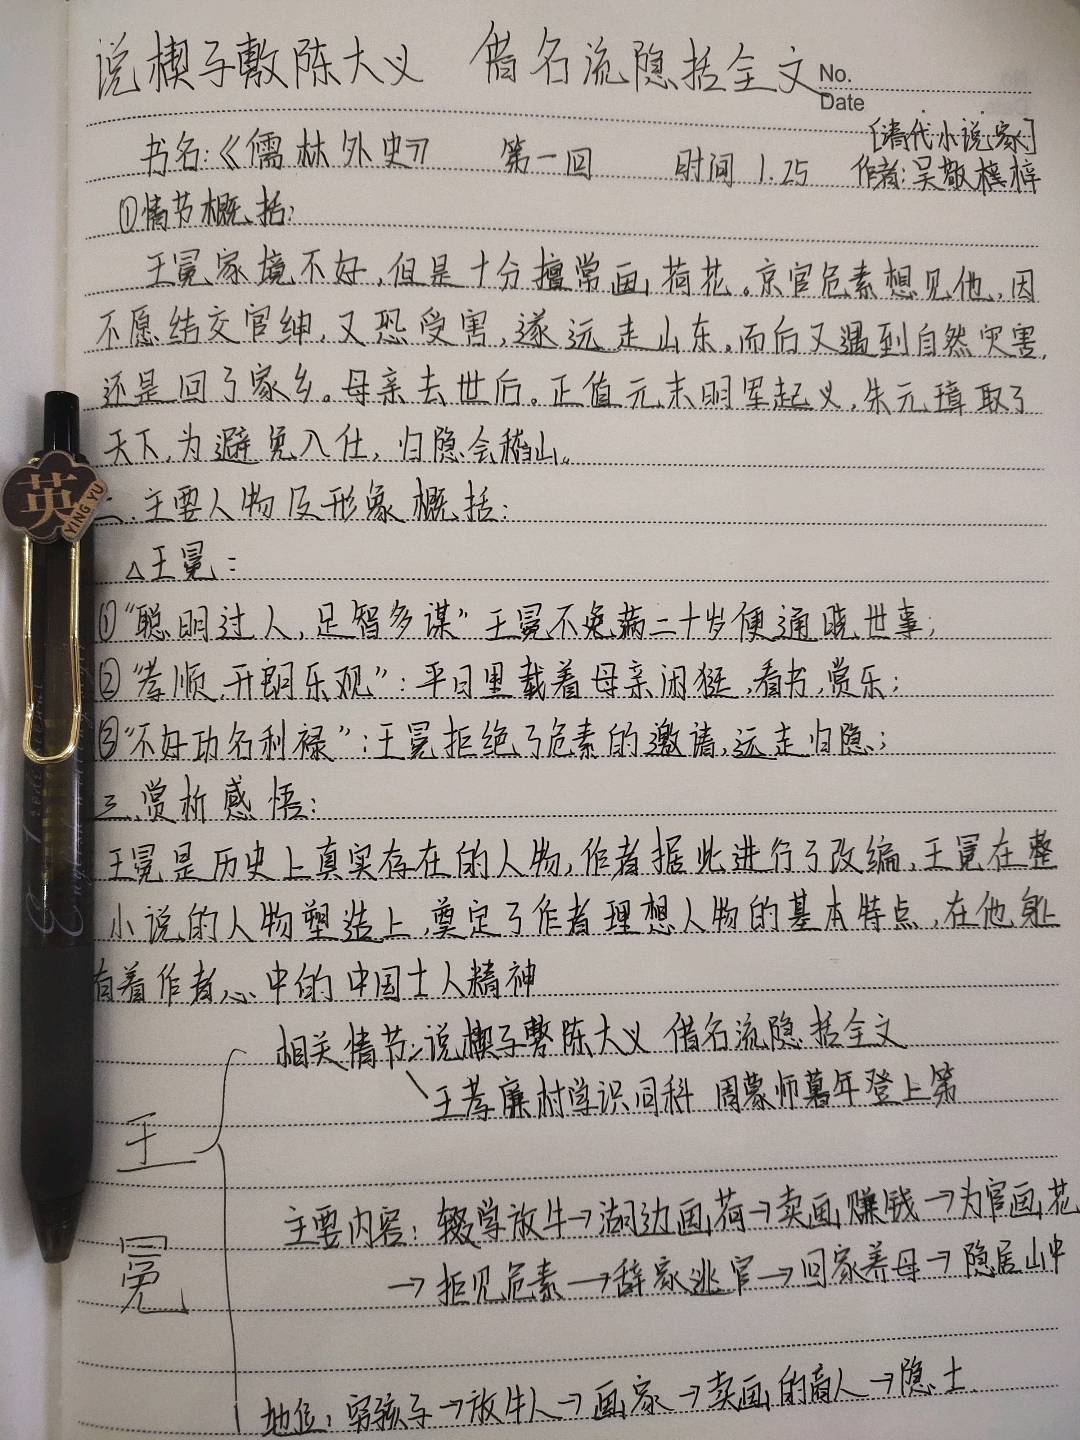 说楔子敷陈大义 借名流隐括全文
No.
Date
[清代小说家]
书名:《儒林外史》 第一回 时间 1.25 作者:吴敬梓
①情节概括:
王冕家境不好,但是十分擅常画荷花。京官危素想见他,因
不愿结交官绅,又恐受害,遂远走山东。而后又遇到自然灾害,
还是回了家乡。母亲去世后。正值元末明军起义,朱元璋取了
天下,为避免入仕,归隐会稽山。
二.主要人物及形象概括:
△王冕:
①“聪明过人,足智多谋”王冕不免满二十岁便通晓世事;
②“孝顺,开朗乐观”:平日里载着母亲闲逛,看书,赏乐;
③“不好功名利禄”:王冕拒绝了危素的邀请,远走归隐;
三.赏析感悟:
王冕是历史上真实存在的人物,作者据此进行了改编,王冕在整
小说的人物塑造上,奠定了作者理想人物的基本特点,在他身上
有着作者心中的中国士人精神
相关情节:说楔子敷陈大义 借名流隐括全文
王孝廉村学识同科 周蒙师暮年登上第
王冕
主要内容:辍学放牛→湖边画荷→卖画赚钱→为官画花
→拒见危素→辞家逃官→回家养母→隐居山中
地位:穷孩子→放牛人→画家→卖画的商人→隐士
英
YING YU